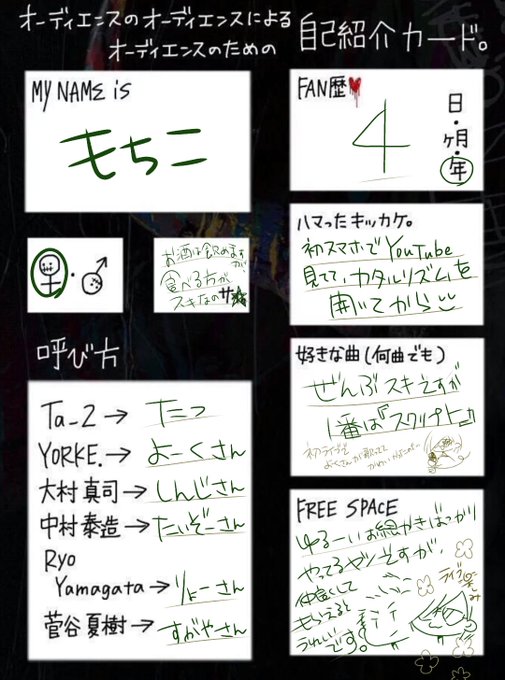 オーディエンスのオーディエンスによる
オーディエンスのための
自己紹介カード。
MY NAME is
もちこ
FAN歴
4
日・ヶ月・年
お酒は飲めますが、
食べる方が
スキなのサ
ハマったキッカケ。
初スマホでYouTube
見てて、カタルリズムを
聞いてから
呼び方
Ta_2→ たつ
YORKE.→ よーくさん
大村真司→ しんじさん
中村泰造→ たいぞーさん
Ryo
Yamagata→ りょーさん
菅谷夏樹→ すがやさん
好きな曲(何曲でも)
ぜんぶスキですが
1番は『スクリプト』
初ライブで
よーくさんが歌ってて
FREE SPACE
ゆるーいお絵かきばっかり
やってるヤツですが、
仲良くして
もらえると
うれしいです。
ライブ楽しみ